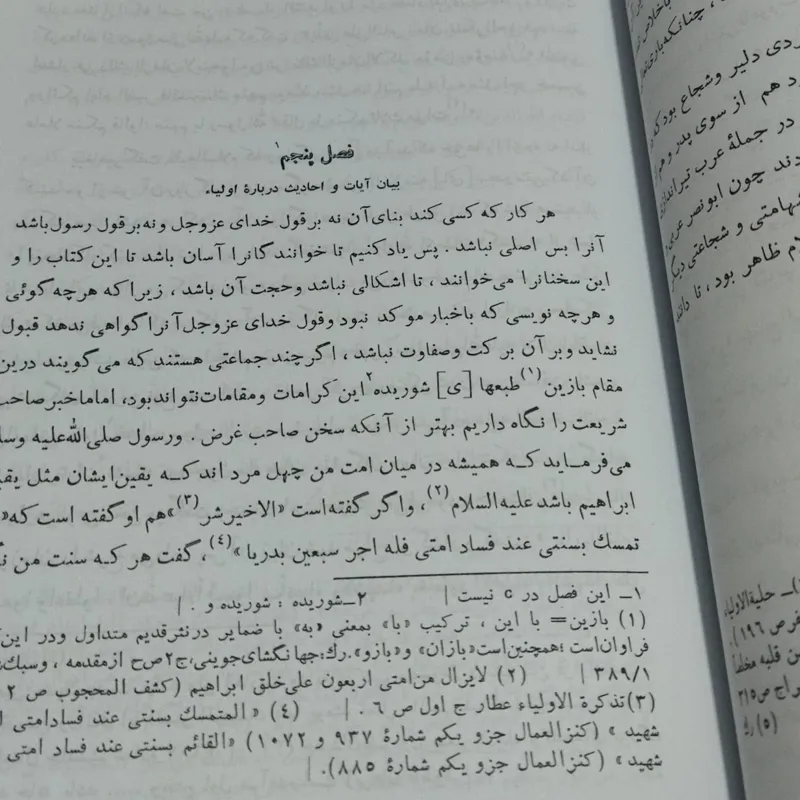 فصل پنجم۱
بیان آیات و احادیث دربارهٔ اولیاء
هر کار که کسی کند بنای آن نه بر قول خدای عزوجل ونه بر قول رسول باشد
آنرا بس اصلی نباشد . پس یاد کنیم تا خوانندگانرا آسان باشد تا این کتاب را و
این سخنانرا می‌خوانند ، تا اشکالی نباشد وحجت آن باشد ، زیرا که هرچه گوئی
و هرچه نویسی که باخبار موکد نبود وقول خدای عزوجل آنرا گواهی ندهد قبول
نشاید و بر آن برکت وصفاوت نباشد ، اگرچند جماعتی هستند که می‌گویند درین
مقام بازین(۱) طبعها [ی] شوریده۲ این کرامات ومقامات نتواند بود، اما ما خبر صاحب
شریعت را نگاه داریم بهتر از آنکه سخن صاحب غرض . ورسول صلی‌الله‌علیه
می‌فرماید که همیشه در میان امت من چهل مرد اند که یقین ایشان مثل
ابراهیم باشد علیه‌السلام(۲)، واگر گفته است «الاخیر شر(۳)» هم او گفته است که«
تمسك بسنتی عند فساد امتی فله اجر سبعین بدریا»(۴)، گفت هر که سنت من
۱ــ این فصل در c نیست | ۲ــ شوریده : شوریده و . |
(۱) بازین= با این ، ترکیب «با» بمعنی «به» با ضمایر درنثرقدیم متداول ودر این
فراوان‌است ؛ همچنین‌است «بازان» و «بازو». رك: جهانگشای‌جوینی، ج۲ ص ح ازمقدمه ،
۳۸۹/۱ | (۲) لایزال من‌امتی اربعون علی‌خلق ابراهیم (کشف المحجوب ص
(۳) تذکرة الاولیاء عطار ج اول ص ۶ . | (۴) «المتمسك بسنتی عند فسادامتی
شهید » (کنزالعمال جزو یکم شمارهٔ ۹۳۷ و ۱۰۷۲) «القائم بسنتی عند فساد امتی
شهید » (کنزالعمال جزو یکم شمارهٔ ۸۸۵). |
، چنانکه
ردی دلیر وشجاع بود که
د هم از سوی پدر و هم
در جملهٔ عرب تیرانداز
دند چون ابونصر
شهامتی و شجاعتی دیگر
ظاهر بود ، تا
حلیةالاولیاء
ص ۱۹۶).
ن قلبه
ص ۳۱۵
(۵) رك